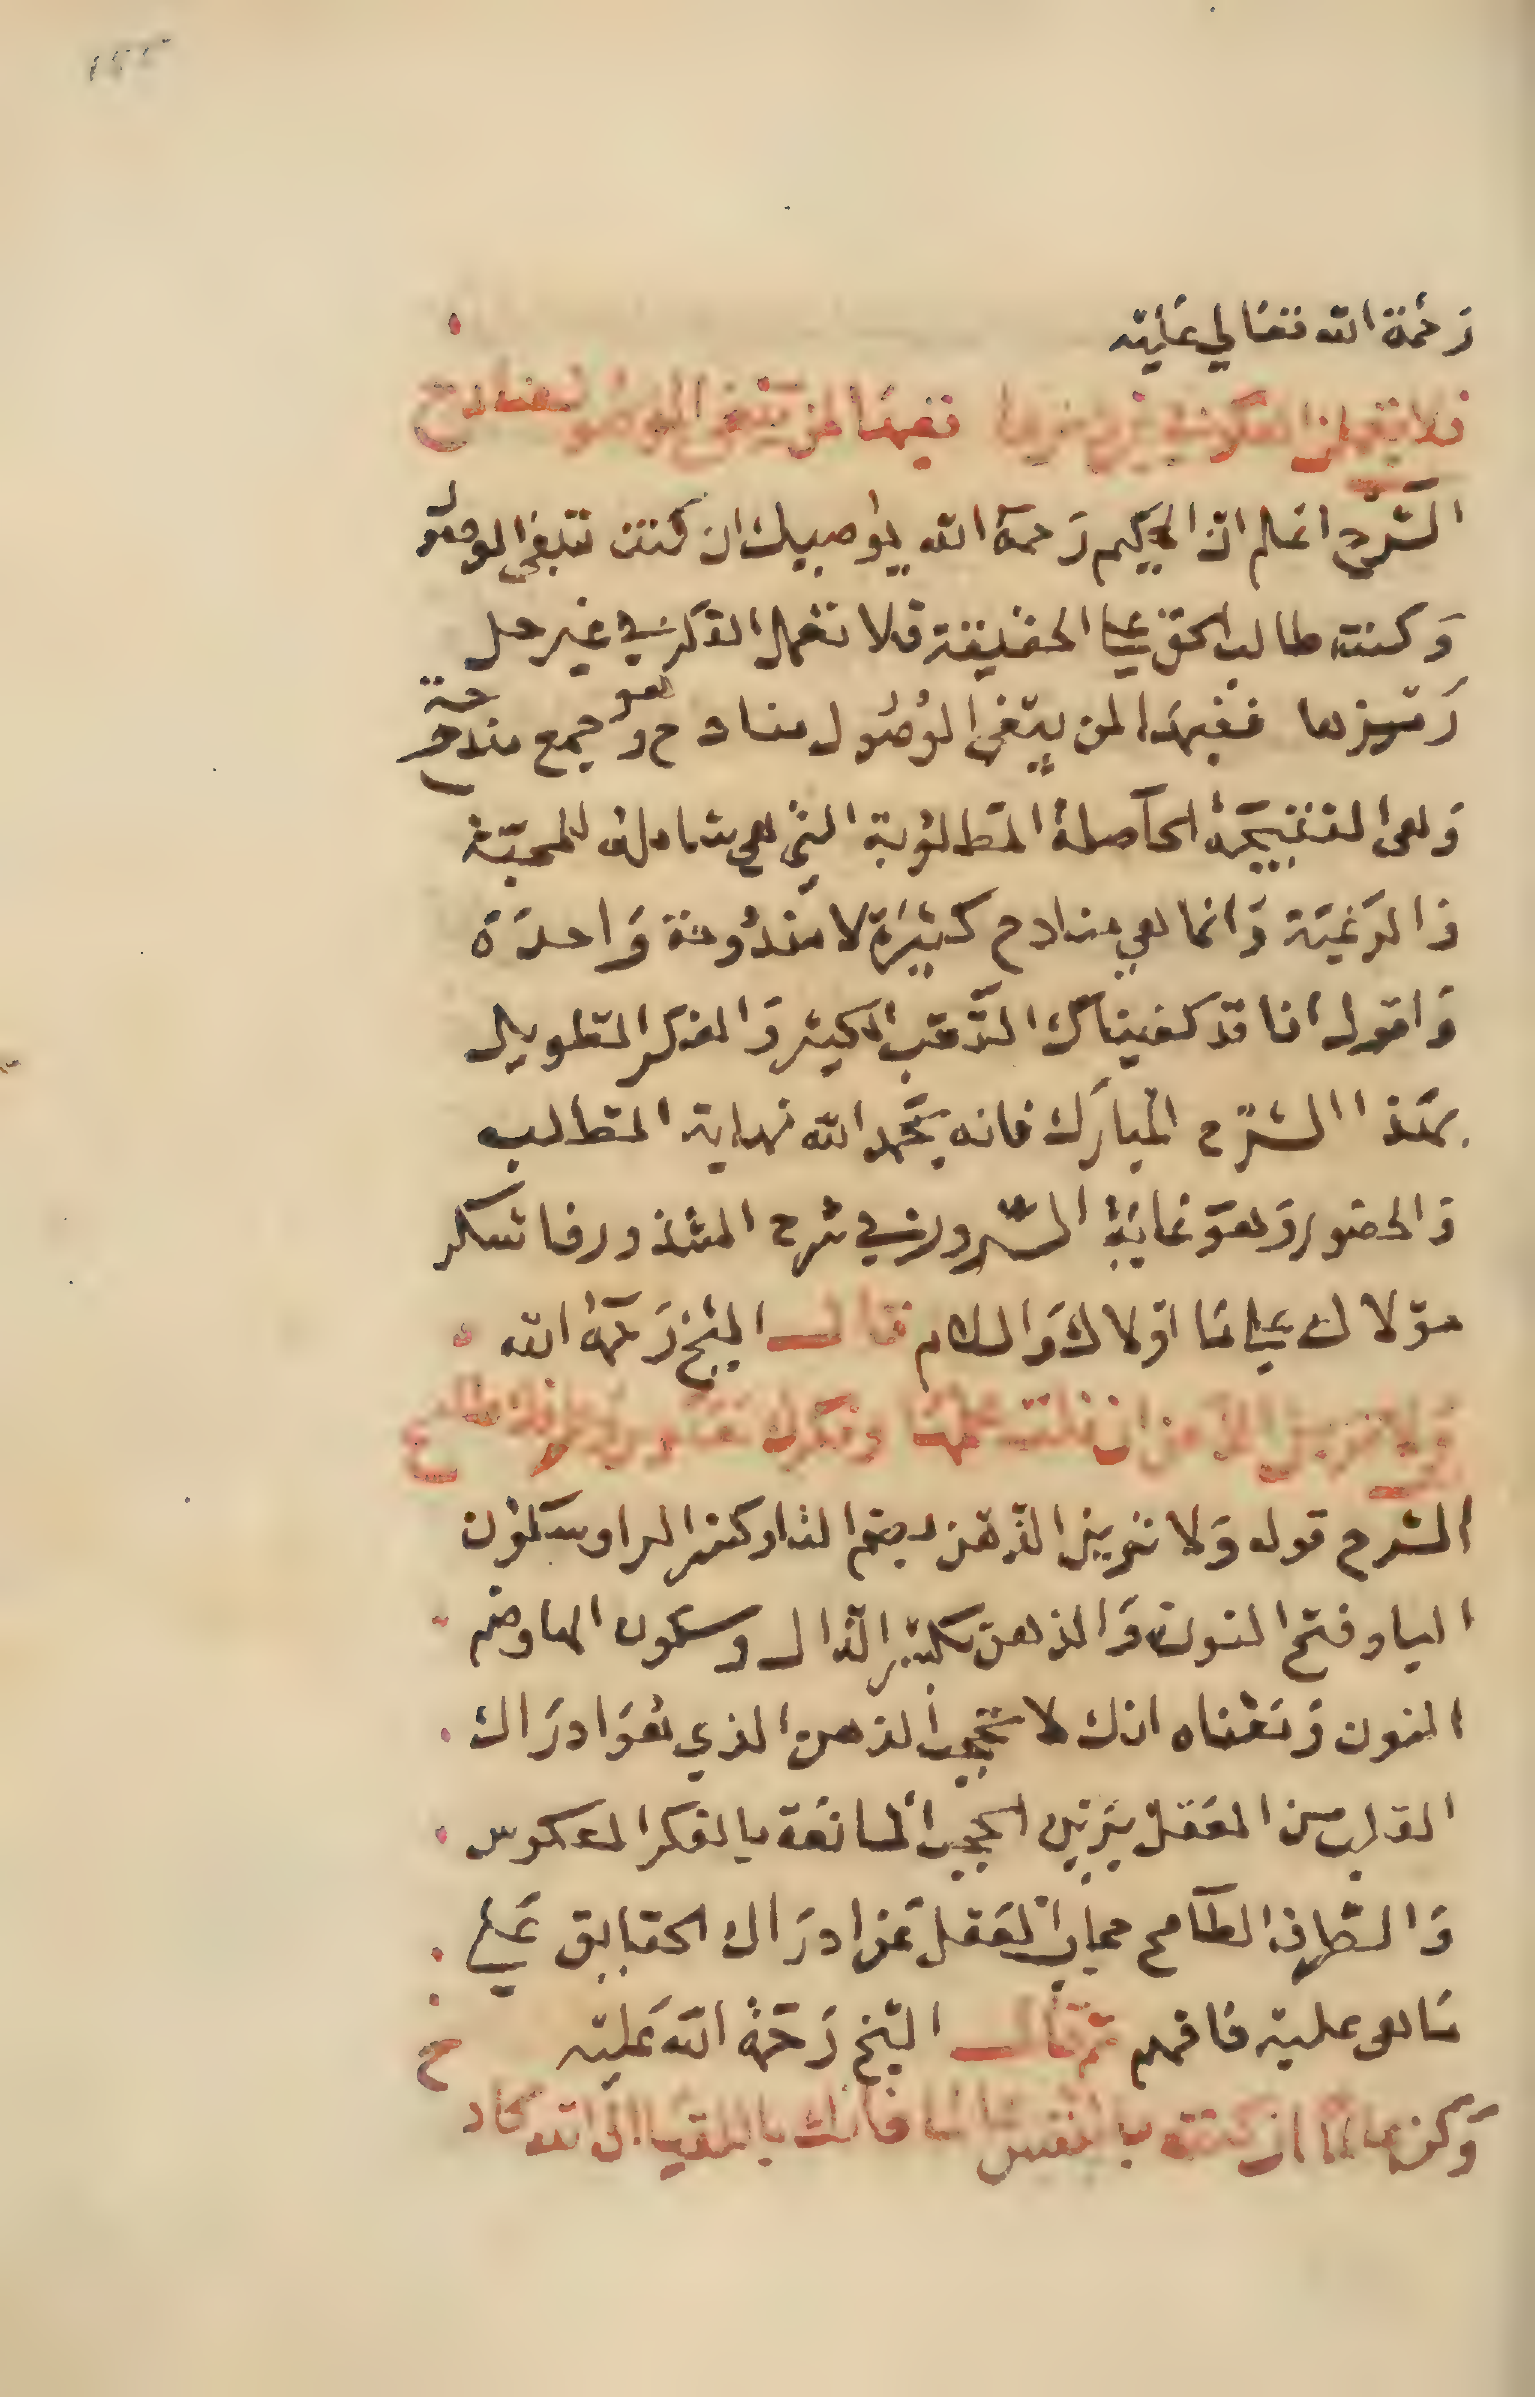 رحمة الله تعالي عليه
فلا تعملن الفكر في غير رمزها ففيها لمن يبتغي الوصول منادح
الشرح اعلم ان الحكيم رحمة الله يواصيك ان كنت تبتغي الوصول
وكنت طالب الحق علي الحقيقة فلا تعمل الفكر في غير حل
رمزها ففيها لمن يبتغي الوصول منادح وهو جمع مندحة
وهي النتيجة الحاصلة المطلوبة التي هي شاملة للمحبة
والرغبة وانما هي منادح كثيرة لا مندوحة واحدة
واقول انا قد كفيناك التعب الكثير والفكر الطويل
بهذا الشرح المبارك فانه بحمد الله نهاية المطالب
والحضور وهو غاية السرور في شرح الشذور فاشكر
مولاك علي ما اولاك والسلام قال الشيخ رحمة الله
ولا تزين الذهن ان
الشرح قوله ولا ترين الذهن بضم التا وكسر الرا وسكون
اليا وفتح النون والذهن بكسر الذال وسكون الها وضم
النون ومعناه انك لا تحجب الذهن الذي هو ادراك
القلب من العقل برين الحجب المانعة بالفكر المعكوس
والطرف الطامح حجاب العقل عن ادراك الحقايق علي
ما هي عليه فافهم ثم قال الشيخ رحمة الله عليه
وكن عالما ان كنت بالنفس